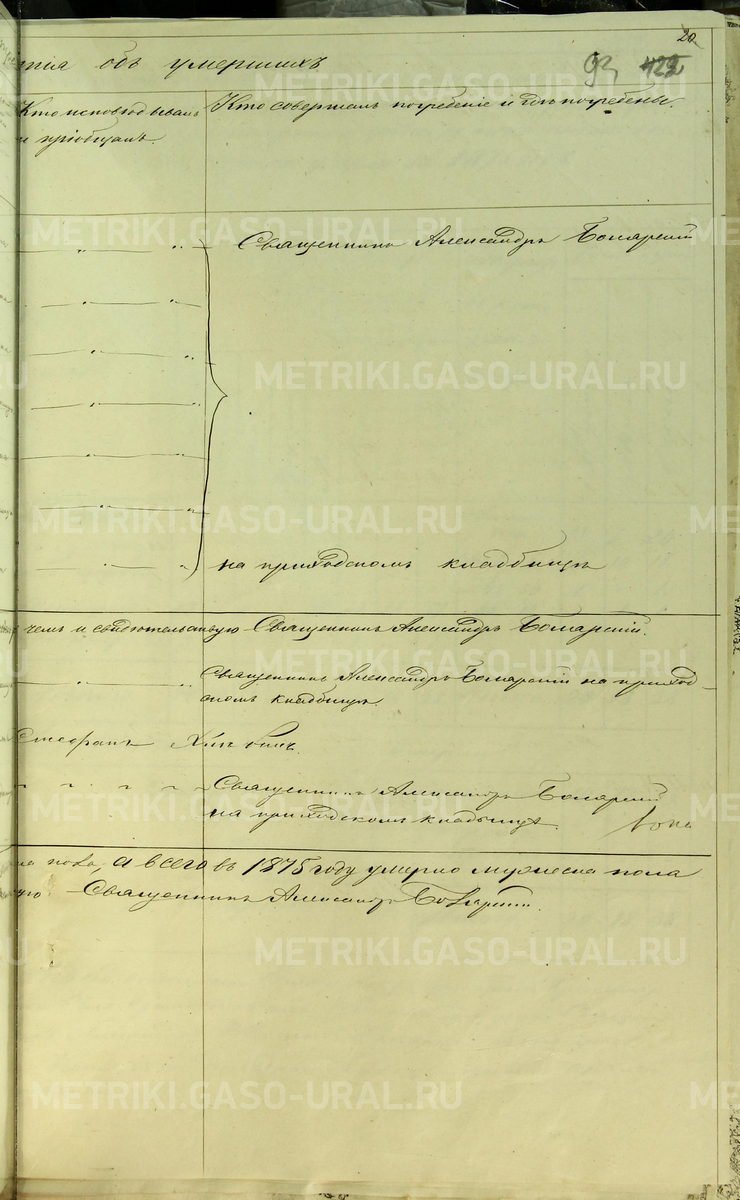 20
93 422
тія объ умершихъ
Кто исповѣдывалъ и пріобщалъ.
Кто совершалъ погребеніе и гдѣ погребены.
Священникъ Александръ Боярскій
на приходскомъ кладбищѣ
чемъ и свидѣтельствую Священникъ Александръ Боярскій.
Священникъ Александръ Боярскій на приход-
скомъ кладбищѣ.
Стефанъ
Священникъ Александръ Боярскій
на приходскомъ кладбищѣ.
пола, а всего въ 1875 году умерло мужеска пола
Священникъ Александръ Боярскій.
METRIKI.GASO-URAL.RU